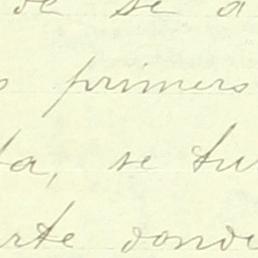 de se a
primers
ta, se tu
arte donde